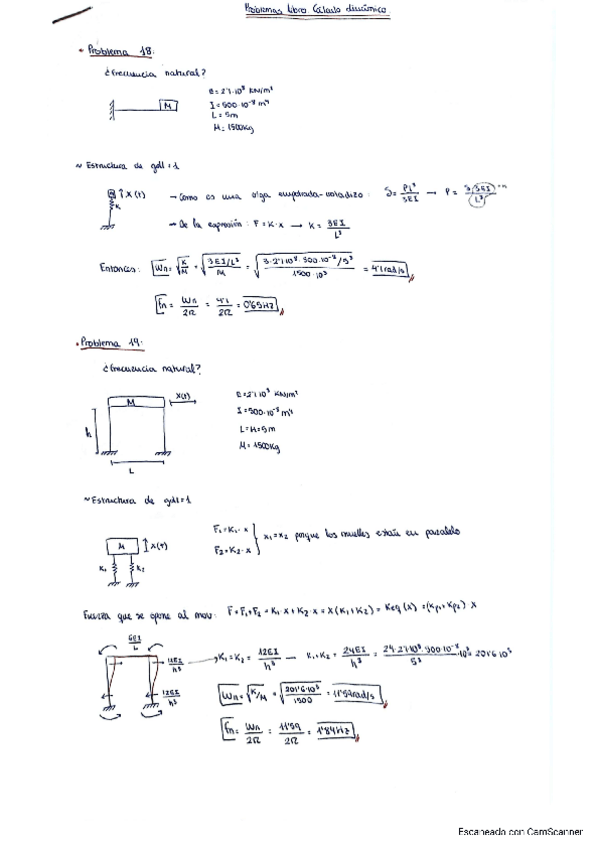 Problemas Libro Cálculo dinámico.
• Problema 18:
¿Frecuencia natural?
M
E = 2'1·10⁸ KN/m²
I = 500·10⁻⁸ m⁴
L = 5m
M = 1500Kg
~ Estructura de gdl = 1
X(t)
K
→ Como es una viga empotrada-voladizo: δ = PL³/3EI → P = δ·3EI/L³
→ De la expresión: F = K·x → K = 3EI/L³
Entonces: Wn = √K/M = √(3EI/L³)/M = √(3·2'1·10⁸·500·10⁻⁸/5³)/1500·10³ = 4'1 rad/s
fn = Wn/2π = 4'1/2π = 0'65Hz
• Problema 19:
¿Frecuencia natural?
M X(t)
h
L
E = 2'1·10⁸ KN/m²
I = 500·10⁻⁸ m⁴
L = H = 5m
M = 1500Kg
~ Estructura de gdl = 1
M X(t)
K₁ K₂
F₁ = K₁·x
F₂ = K₂·x
x₁ = x₂ porque los muelles están en paralelo
Fuerza que se opone al mov: F = F₁ + F₂ = K₁·x + K₂·x = x(K₁ + K₂) = Keq (x) = (Kp₁ + Kp₂) x
6EI/L
12EI/h³
12EI/h³
K₁ = K₂ = 12EI/h³ → K₁ + K₂ = 24EI/h³ = 24·2'1·10⁸·500·10⁻⁸/5³ ·10³ = 201'6·10³
Wn = √K/M = √201'6·10³/1500 = 11'59 rad/s
fn = Wn/2π = 11'59/2π = 1'84Hz
Escaneado con CamScanner